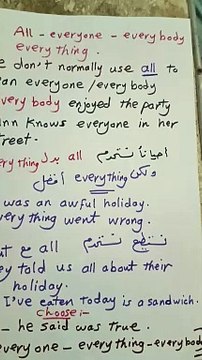 All - everyone - everybody
everything.
e don't normally use all to
an everyone / every body
every body enjoyed the party
nn knows everyone in her
treet.
احيانا نستخدم all بدل everything
ولكن everything افضل
was an awful holiday.
very thing went wrong.
ut all مع نستطيع نستخدم
ey told us all about their
holiday.
I've eaten today is a sandwich.
Choose:-
- he said was true.
everyone - everything - everybody